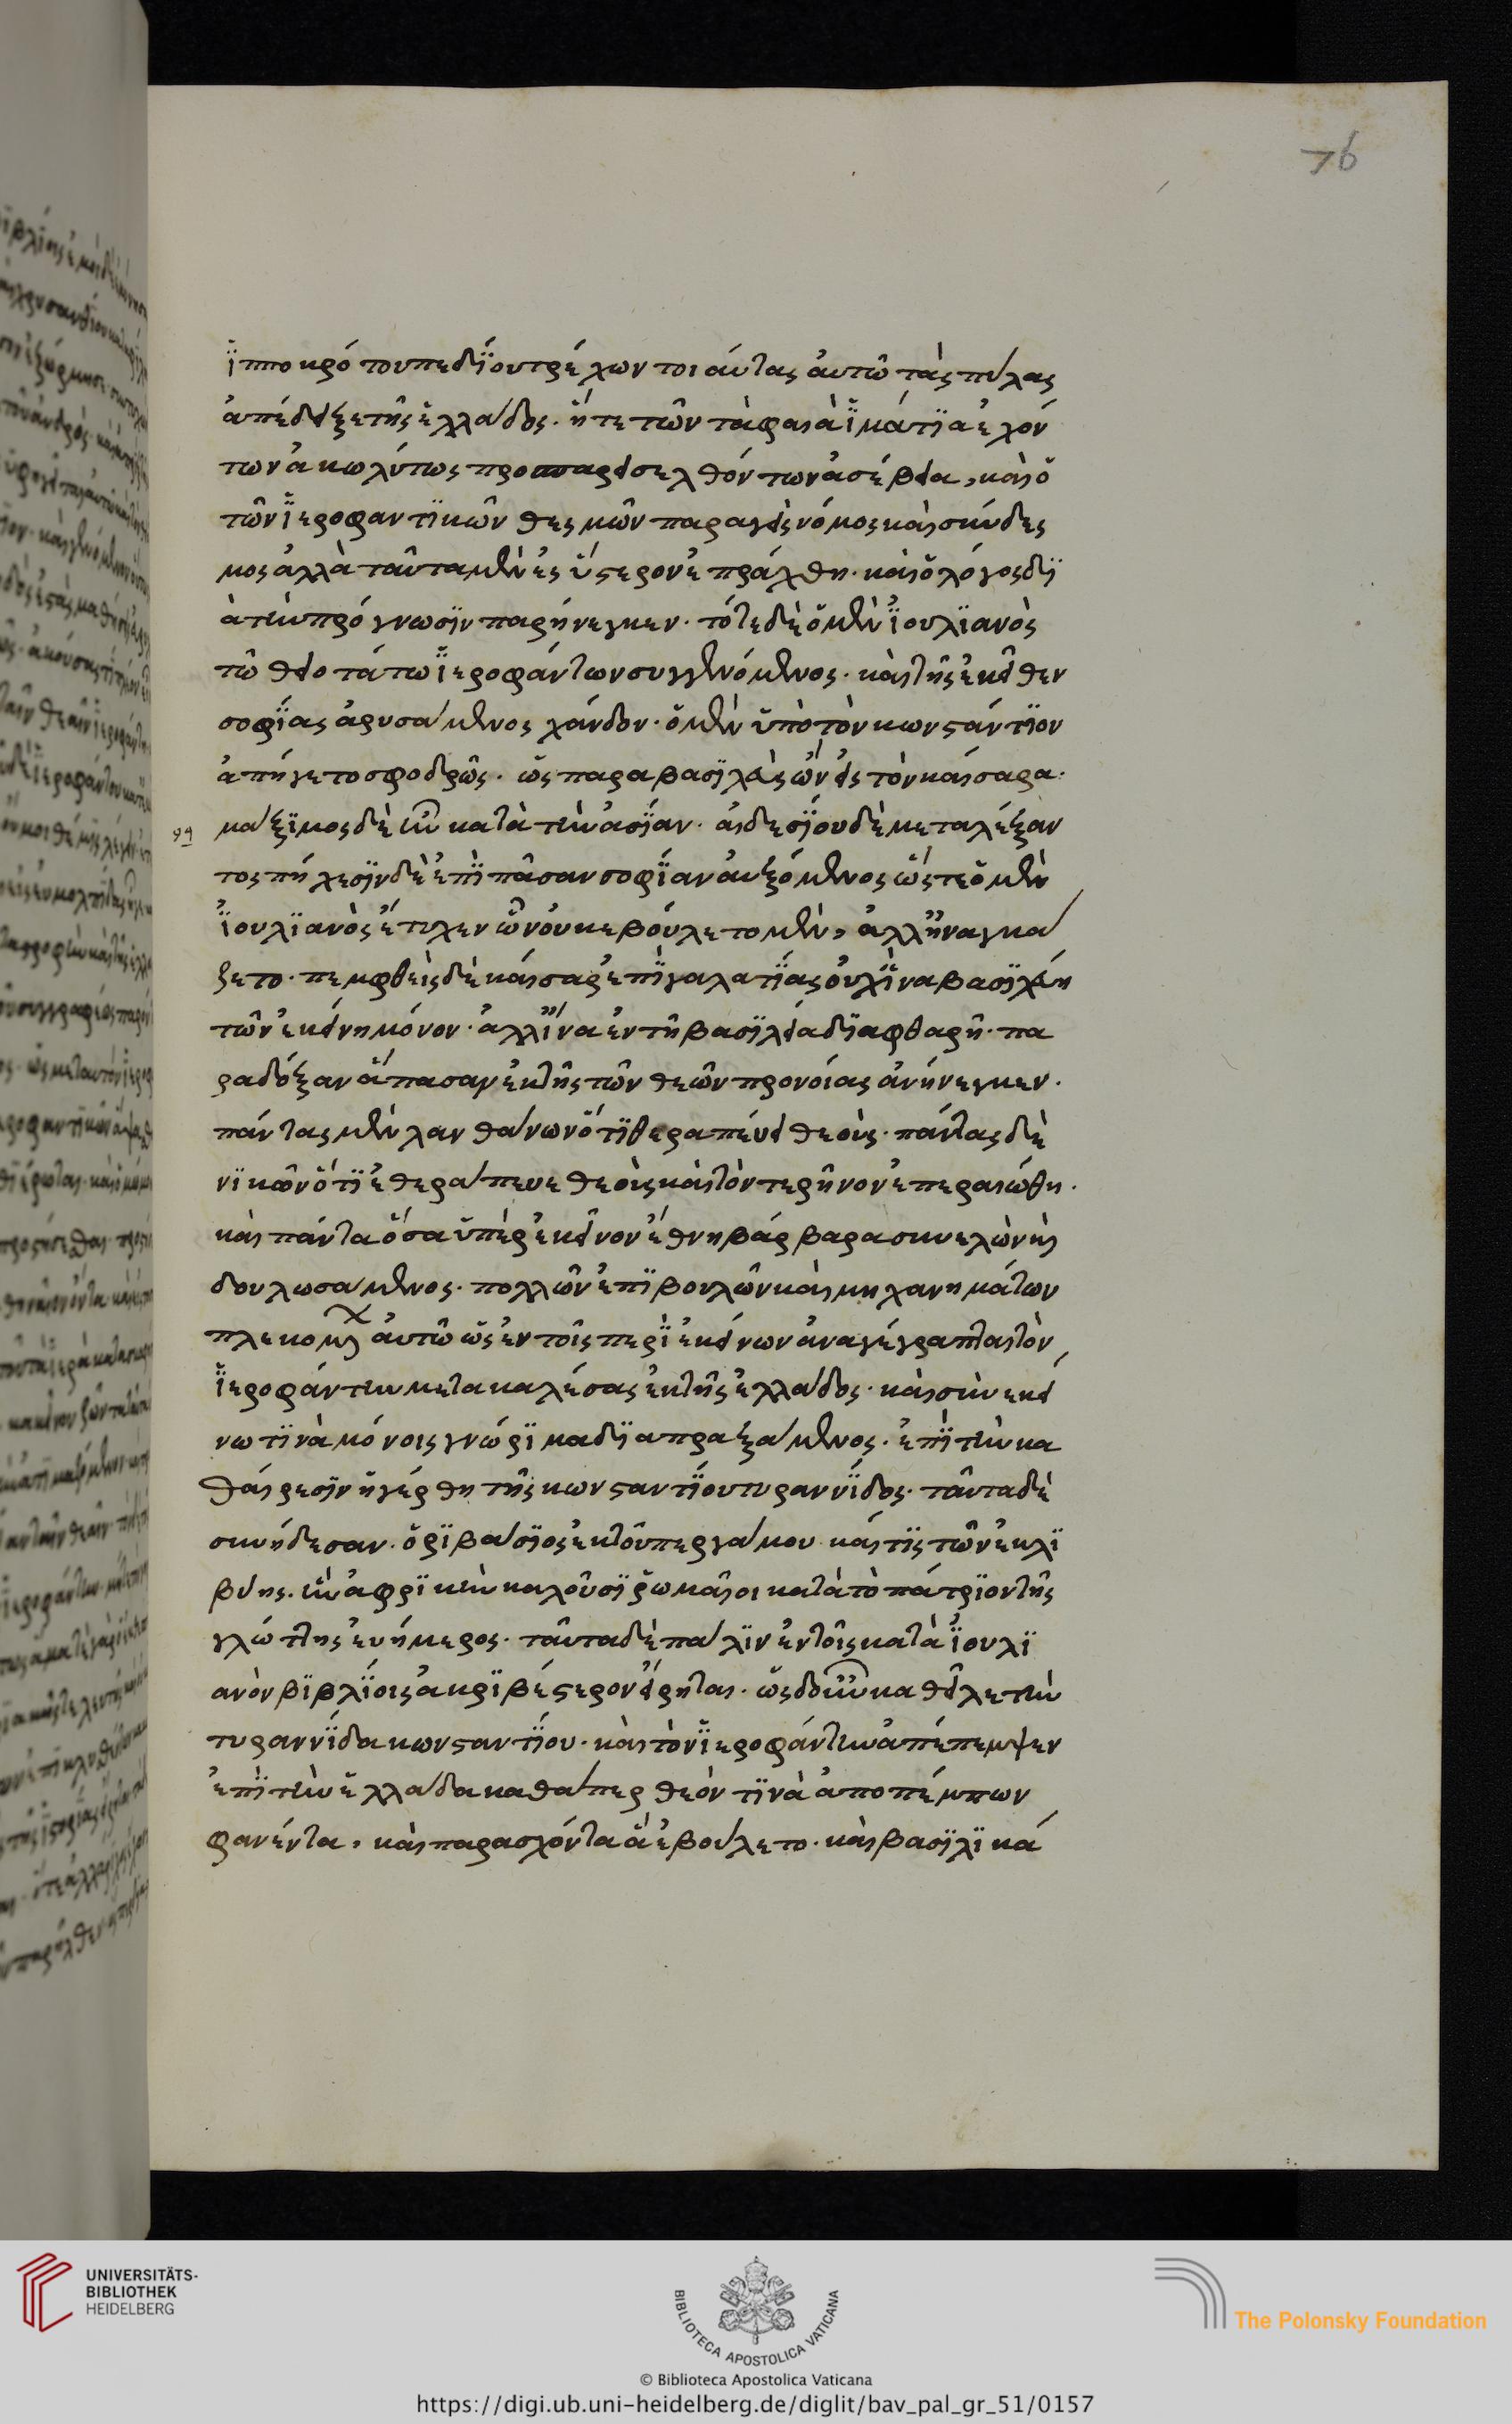 76
ἱπποκρότου πεδίου τρέχων τοιαύτας αὐτῶ τὰς πύλας
ἀπέδειξε τῆς ἑλλάδος. ἥ τε τῶν τὰ φαιὰ ἱμάτια ἐχόν
των ἀκωλύτως προσπαρεισελθόντων ἀσέβεια, καὶ ὁ
τῶν ἱεροφαντικῶν θεσμῶν παραγεὶς νόμος καὶ σύνδεσ
μος ἀλλὰ ταῦτα μὲν ἐς ὕστερον ἐπράχθη. καὶ ὁ λόγος δι
ὰ τὴν πρόγνωσιν παρήνεγκεν. τότε δὲ ὁ μὲν ἰουλιανὸς
τῶ θειοτάτω ἱεροφάντων συγγενόμενος. καὶ τῆς ἐκεῖθεν
σοφίας ἀρυσάμενος χάνδον. ὁ μὲν ὑπὸ τὸν κωνστάντιον
ἀπήγετο σφοδρῶς. ὡς παραβασιλεὺς ὢν εἰς τὸν καίσαρα.
99 μάξιμος δὲ ἦν κατὰ τὴν ἀσίαν. αἰδεσίου δὲ μεταλέξαν
τος πήχεσιν δὲ ἐπὶ πᾶσαν σοφίαν αὐξόμενος ὥστε ὁ μὲν
ἰουλιανὸς ἔτυχεν ὧν οὐκ ἐβούλετο μὲν, ἀλλ' ἠναγκά
ζετο. πεμφθεὶς δὲ καίσαρ ἐπὶ γαλατίας οὐχ ἵνα βασιλεύη
τῶν ἐκείνη μόνον. ἀλλ' ἵνα ἐν τῆ βασιλεία διαφθαρῆ. πα
ραδόξαν ἅπασαν ἐκ τῆς τῶν θεῶν προνοίας ἀνήνεγκεν.
πάντας μὲν λανθάνων ὅτι θεραπεύει θεούς. πάντας δὲ
νικῶν ὅτι ἐθεράπευε θεοὺς καὶ τόν τε ῥῆνον ἐπεραιώθη.
καὶ πάντα ὅσα ὑπὲρ ἐκεῖνον ἔθνη βάρβαρα συνελὼν καὶ
δουλωσάμενος. πολλῶν ἐπιβουλῶν καὶ μηχανημάτων
πλεκομχ αὐτῶ ὡς ἐν τοῖς περὶ ἐκείνων ἀναγέγραπται τὸν
ἱεροφάντην μετακαλέσας ἐκ τῆς ἑλλάδος. καὶ σὺν ἐκεί
νω τινὰ μόνοις γνώριμα διαπραξάμενος. ἐπὶ τὴν κα
θαίρεσιν ἠγέρθη τῆς κωνσταντίου τυραννίδος. ταῦτα δὲ
συνήδεσαν. ὀριβάσιος ἐκ τοῦ περγάμου καί τις τῶν ἐκ λι
βύης. ἣν ἀφρικὴν καλοῦσι ῥωμαῖοι κατὰ τὸ πάτριον τῆς
γλώττης εὐήμερος. ταῦτα δὲ πάλιν ἐν τοῖς κατὰ ἰουλι
ανὸν βιβλίοις ἀκριβέστερον εἴρηται. ὡς δ' οὖν καθεῖλε τὴν
τυραννίδα κωνσταντίου. καὶ τὸν ἱεροφάντην ἀπέπεμψεν
ἐπὶ τὴν ἑλλάδα καθάπερ θεόν τινὰ ἀποπέμπων
φανέντα, καὶ παρασχόντα ἃ ἐβούλετο. καὶ βασιλικά
UNIVERSITÄTS-
BIBLIOTHEK
HEIDELBERG
BIBLIOTECA APOSTOLICA VATICANA
The Polonsky Foundation
© Biblioteca Apostolica Vaticana
https://digi.ub.uni-heidelberg.de/diglit/bav_pal_gr_51/0157